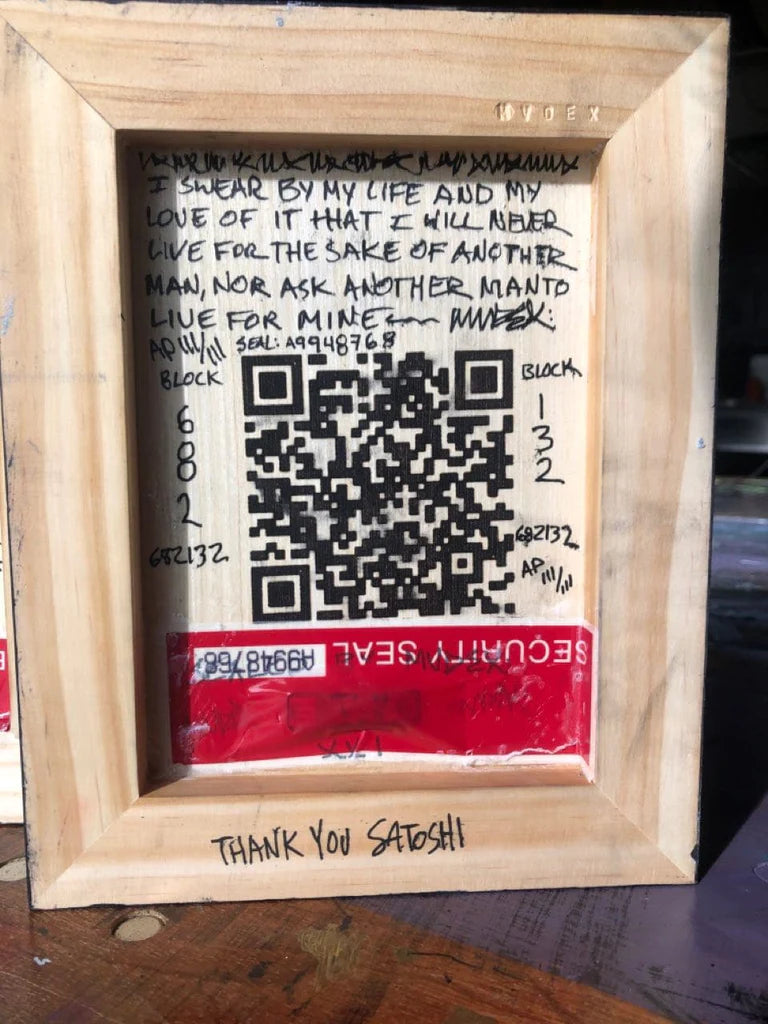 MVDEX
I SWEAR BY MY LIFE AND MY
LOVE OF IT THAT I WILL NEVER
LIVE FOR THE SAKE OF ANOTHER
MAN, NOR ASK ANOTHER MAN TO
LIVE FOR MINE
AP III/III SEAL: A9948768
BLOCK
6
8
2
682132
BLOCK
1
3
2
682132
AP III/III
SECURITY SEAL A9948768
THANK YOU SATOSHI